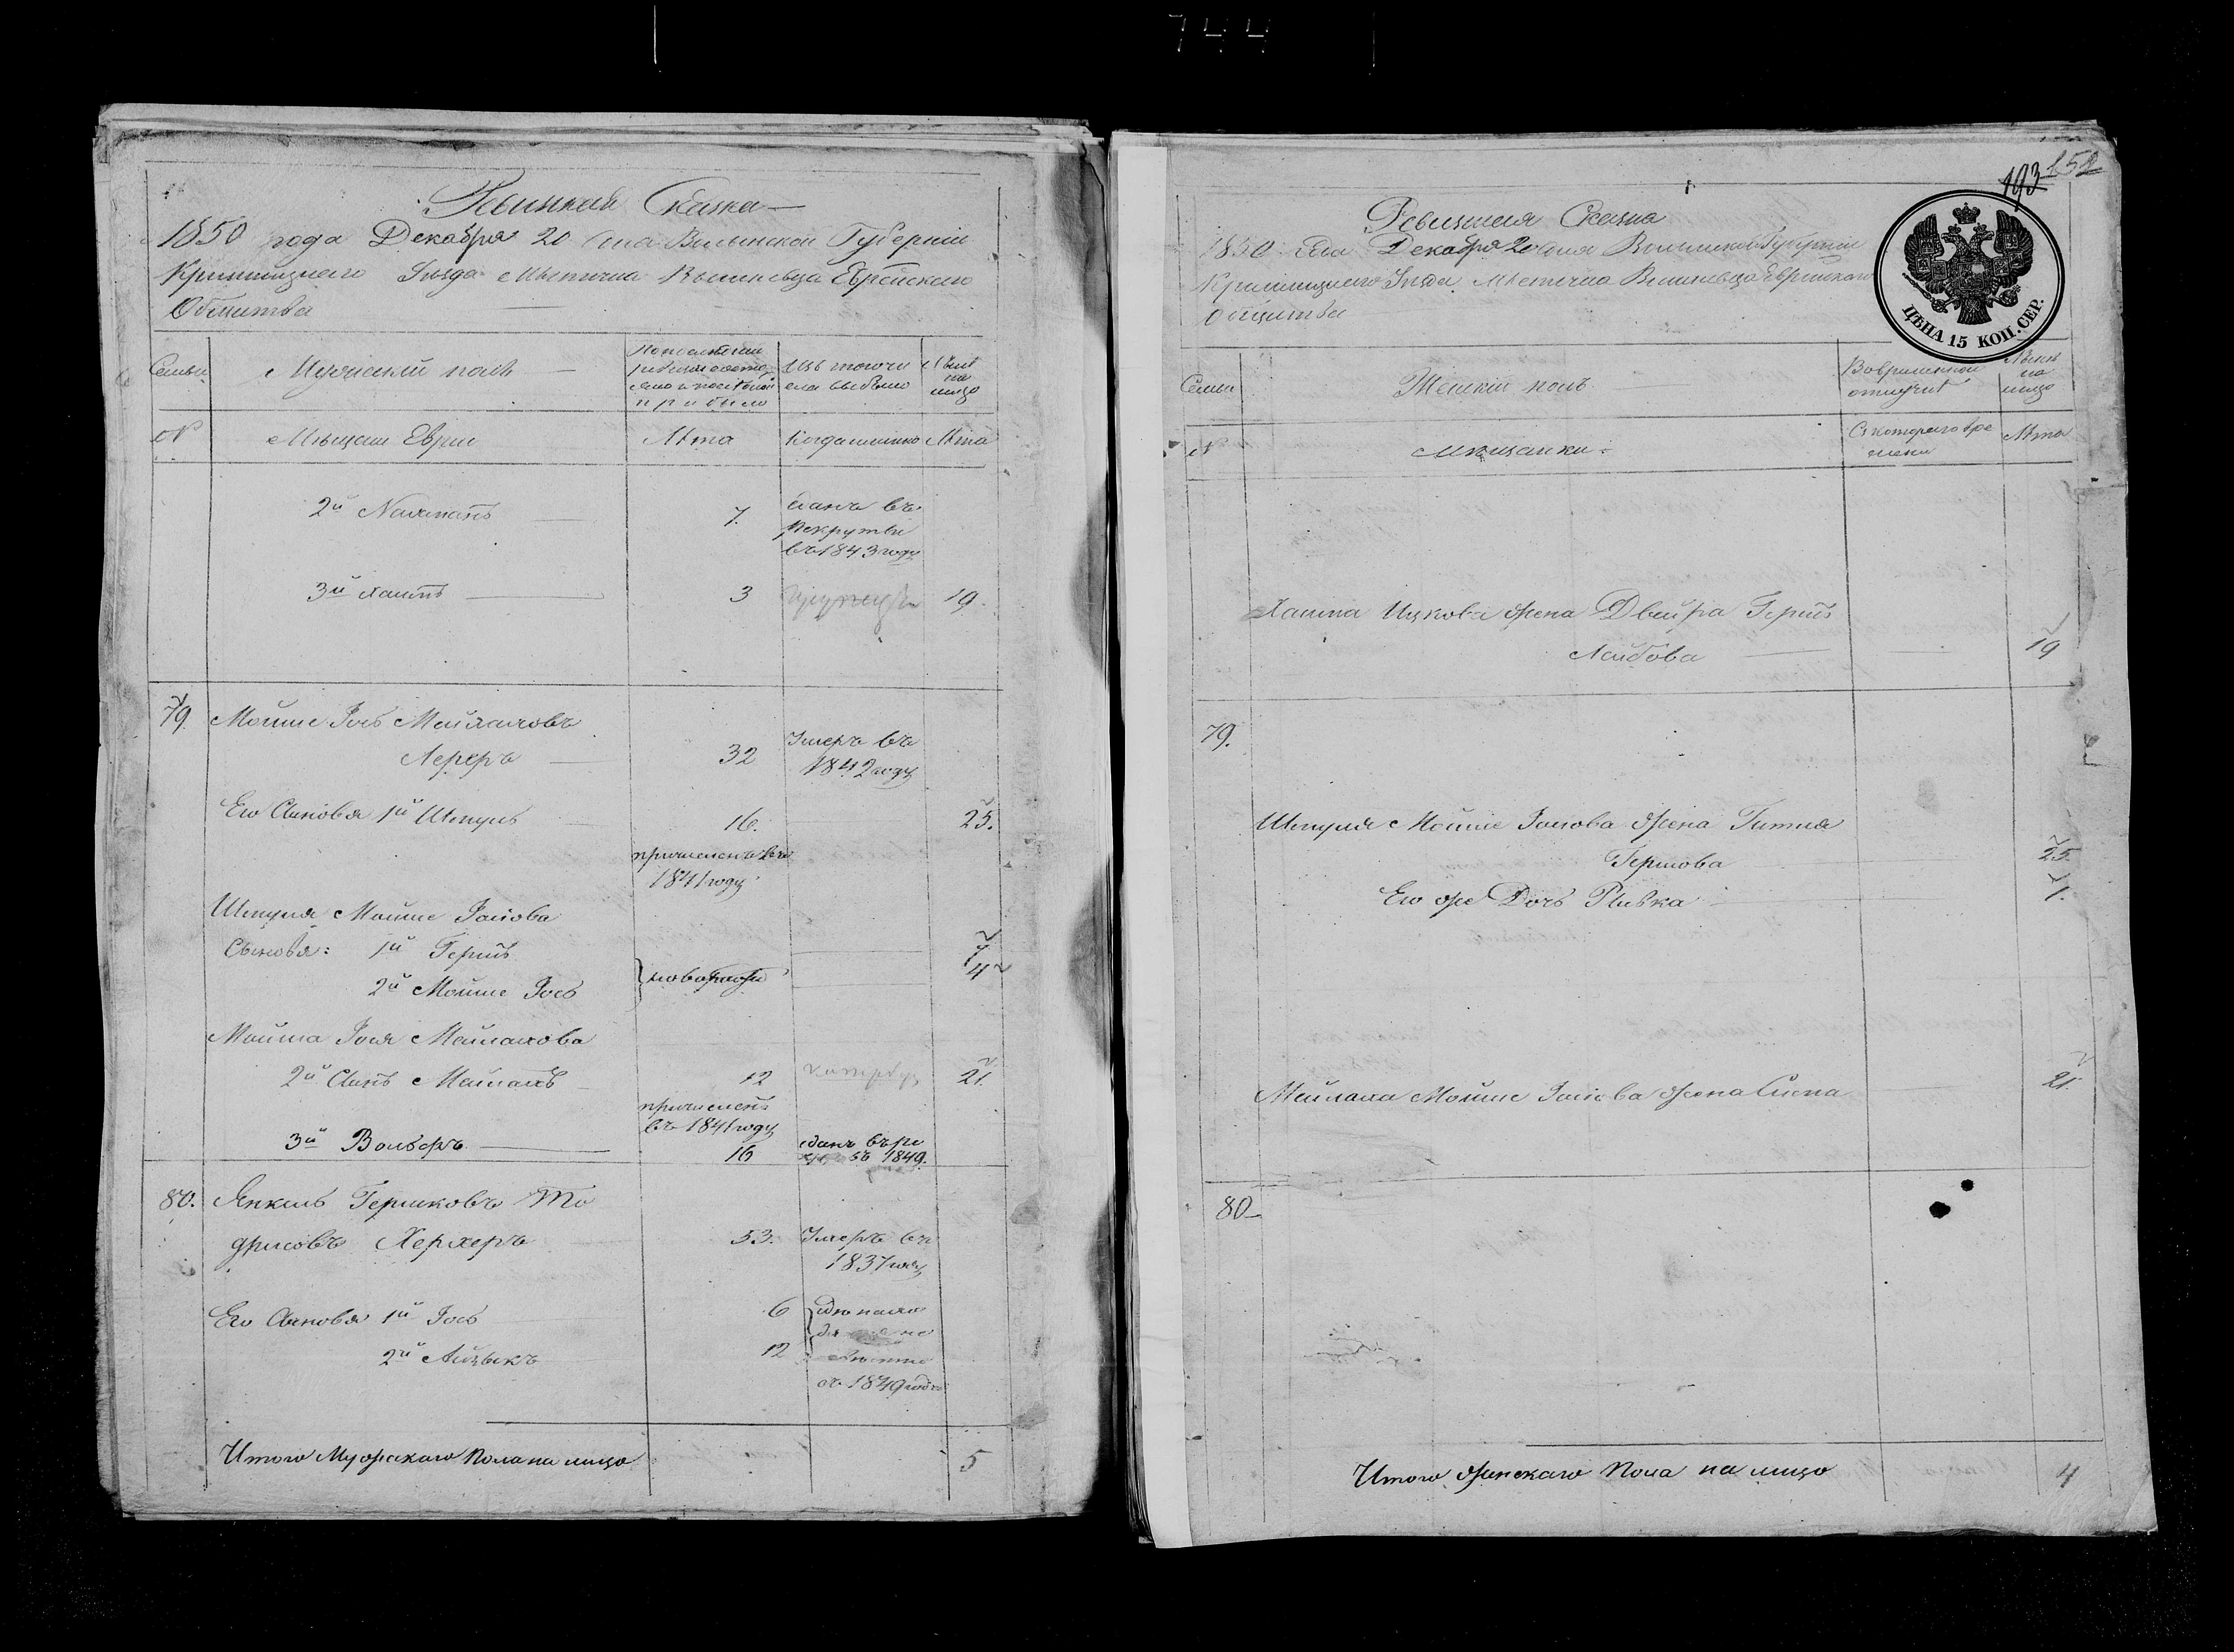 744
Ревизская Сказка
1850 года Декабря 20 дня Волынской Губернии
Кременецкаго Уезда Местечка Вишневца Еврейскаго
Общества
Семьи
Мужеский полъ
Изъ того числа выбыло
Лета на лицо
№
Мещане Евреи
Лета
Когда именно
Лета
2й
7.
сданъ въ
рекруты
въ 1843 году
3й Хаимъ
3
19.
79
Мошко Iось Мейлаховъ
Лереръ
32
Умеръ въ
1842 году
Его Сыновья 1й Шмуль
16.
25.
причисленъ въ
1841 году
Шмуля Мошко Iосiова
Сыновья: 1й Гершъ
7
2й Мошко Iось
4
Мошка Iося Мейлахова
2й Сынъ Мейлахъ
12
21.
причисленъ
въ 1841 году
3й Вольферъ
16
сданъ въ ре
въ 1849.
80.
Янкель Гершковъ
Херхеръ
53.
Умеръ въ
1837 году
Его Сыновья 1й Iось
6
2й Айзыкъ
12
съ 1849 года
Итого Мужескаго Пола на лицо
5
193
152
Ревизская Сказка
1850 года Декабря 20 дня Волынской Губернии
Кременецкаго Уезда Местечка Вишневца Еврейскаго
Общества
ЦѢНА 15 КОП. СЕР.
Семьи
Женский полъ
Во временной отлучке
Лета на лицо
№
Мещанки
С котораго времени
Лета
Хаима Ицкова жена Двойра Гершъ
Лейбова
19
79.
Шмуля Мошко Iосiова жена Гитля
Гершова
25.
Его же Дочь Ривка
1.
Мейлаха Мошко Iосiова жена Сима
21.
80
Итого женскаго Пола на лицо
4